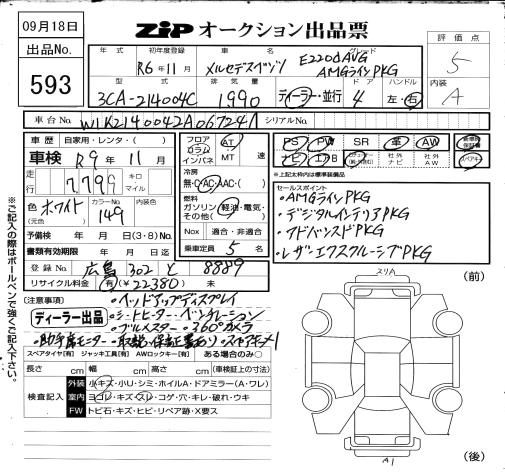 09月18日
ZIP オークション出品票
出品No.
593
年式 初年度登録 車名 グレード
R6年11月 メルセデスベンツ E220d AVG
AMGラインPKG
評価点
5
型式 排気量 ドア ハンドル
3CA-214004C 1990 ディーラー・並行 4 左・右
内装
A
車台No. W1K2140042A067241 シリアルNo.
車歴 自家用・レンタ・( )
車検 R9年11月
走行 7,799 キロ マイル
色 ホワイト (元色) カラーNo. 149 内装色
予備検 年 月 日 (3・8) No.
書類有効期限 年 月 日
登録No. 広島 302 と 8889
リサイクル料金 (有)(¥22380) 未
フロア コラム インパネ AT MT 速
冷房 無・C・AC・AAC・( )
燃料 ガソリン・軽油・電気・その他( )
Nox 適合・非適合
乗車定員 5 名
PS PW SR 革 AW
ナビ エアB 社外ナビ 社外AW
保証書
スペアキー
※上記太枠内は標準装備品
セールスポイント
・AMGラインPKG
・デジタルインテリアPKG
・アドバンスドPKG
・レザーエクスクルーシブPKG
(注意事項)
ディーラー出品
・ヘッドアップディスプレイ
・シートヒーター・ベンチレーション
・ブルメスター・360°カメラ
・助手席モニター・取説・保証書あり・スペアキー1
スペアタイヤ[有] ジャッキ工具[有] AWロックキー[有] ある場合のみ○
長さ cm 幅 cm 高さ cm (車検証上の寸法)
検査記入
外装 小キズ・小U・シミ・ホイルA・ドアミラー(A・ワレ)
室内 ヨゴレ・キズ・スレ・コゲ・穴・キレ・破れ・ウキ
FW トビ石・キズ・ヒビ・リペア跡・X要ス
スリA
(前)
A1
(後)
※ご記入の際はボールペンで強くご記入下さい。